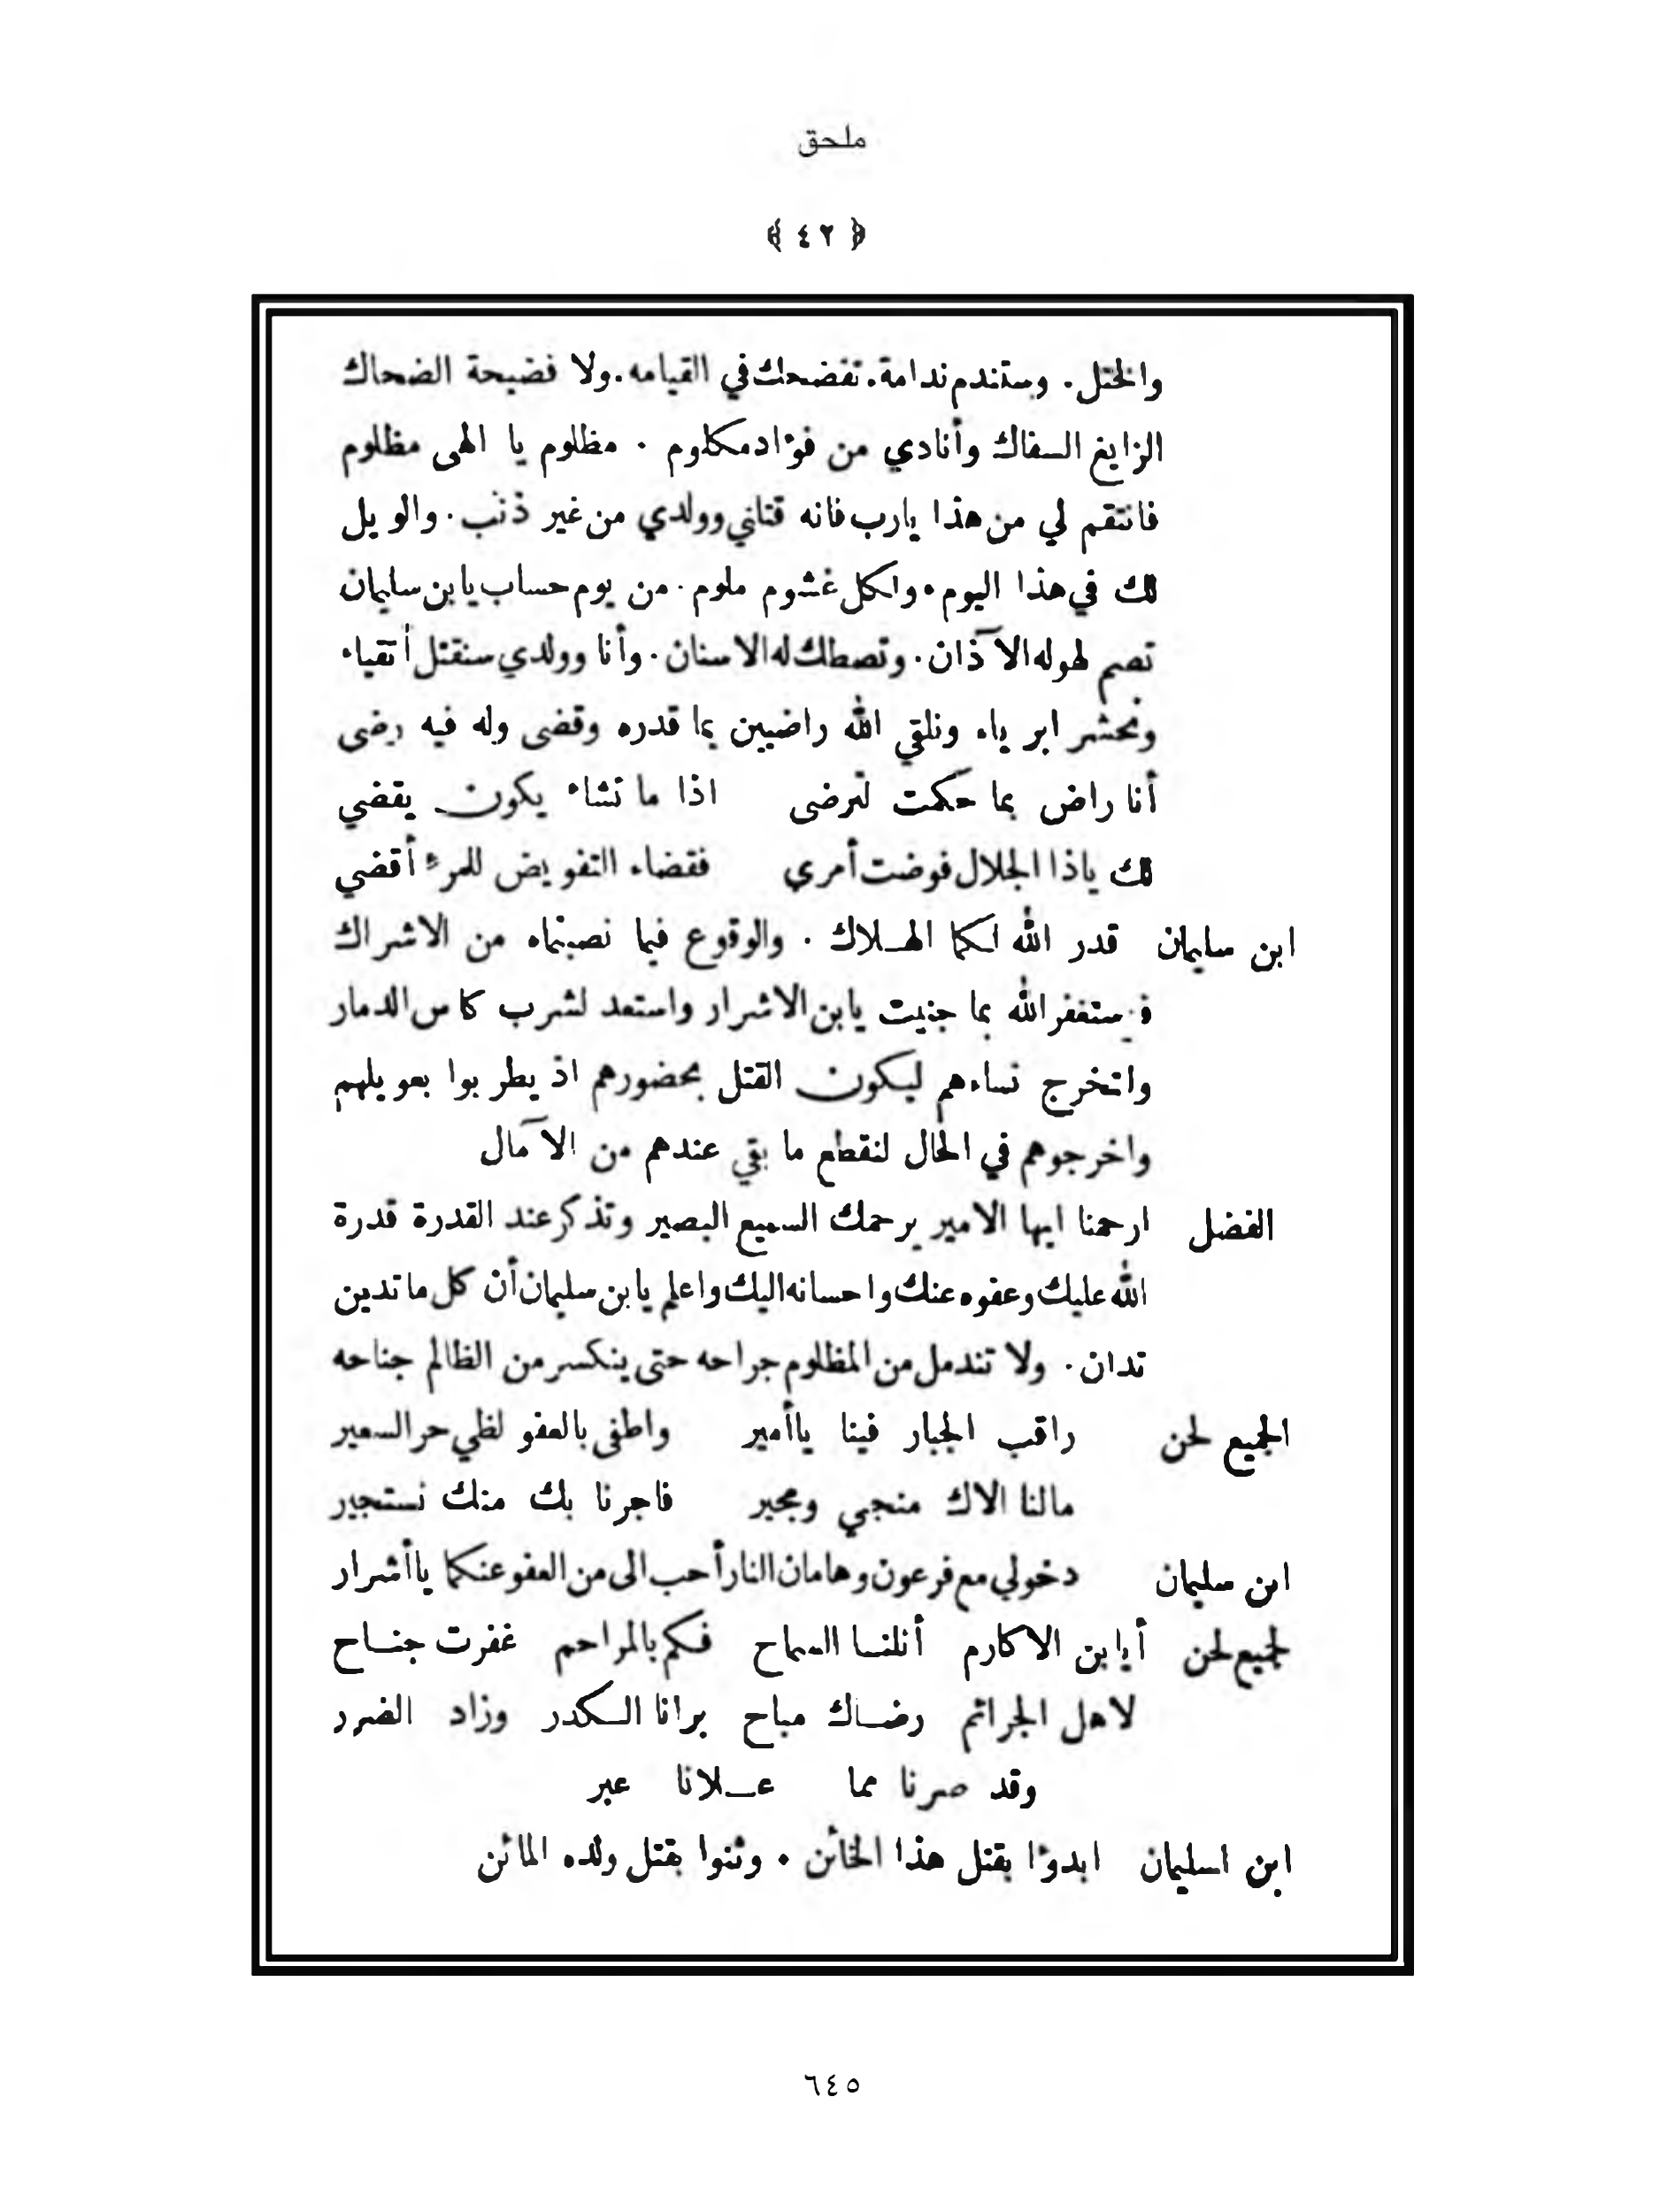 ملحق
﴿ ٤٢ ﴾
والختل . وستندم ندامة . تفضحك في القيامه . ولا فضيحة الضحاك
الزايغ السفاك وأنادي من فؤاد مكلوم . مظلوم يا الهى مظلوم
فانتقم لي من هذا يارب فانه قتلني وولدي من غير ذنب . والويل
لك في هذا اليوم . ولكل غشوم ملوم . من يوم حساب يا بن سليمان
تصم لهوله الآذان . وتصطك له الاسنان . وأنا وولدي سنقتل أتقياء
ونحشر ابرياء ونلقي الله راضيين بما قدره وقضى وله فيه رضى
أنا راض بما حكمت لترضى اذا ما تشاء يكون يقضي
لك ياذا الجلال فوضت أمري فقضاء التفويض للمرء أقضي
ابن سليمان قدر الله لكما الهـلاك . والوقوع فيما نصبتماه من الاشراك
فستغفر الله بما جنيت يا بن الاشرار واستعد لشرب كاس الدمار
ولتخرج نساءهم ليكون القتل بحضورهم اذ يطربوا بعويلهم
واخرجوهم في الحال لنقطع ما بقي عندهم من الآمال
الفضل ارحمنا ايها الامير يرحمك السميع البصير وتذكر عند القدرة قدرة
الله عليك وعفوه عنك واحسانه اليك واعلم يا بن سليمان أن كل ما تدين
تدان . ولا تندمل من المظلوم جراحه حتى ينكسر من الظالم جناحه
الجميع لحن راقب الجبار فينا ياأمير واطفى بالعفو لظي حر السعير
مالنا الاك منجي ومجير فاجرنا بك منك نستجير
ابن سليمان دخولي مع فرعون وهامان النار أحب الى من العفو عنكما ياأشرار
لجميع لحن أيا بن الاكارم أنلنـا السماح فكم بالمراحم غفرت جنـاح
لاهل الجرائم رضـاك مباح برانا الـكدر وزاد الضرر
وقد صرنا مما عـلانا عبر
ابن اسليمان ابدؤا بقتل هذا الخائن . وثنوا بقتل ولده المائن
٦٤٥